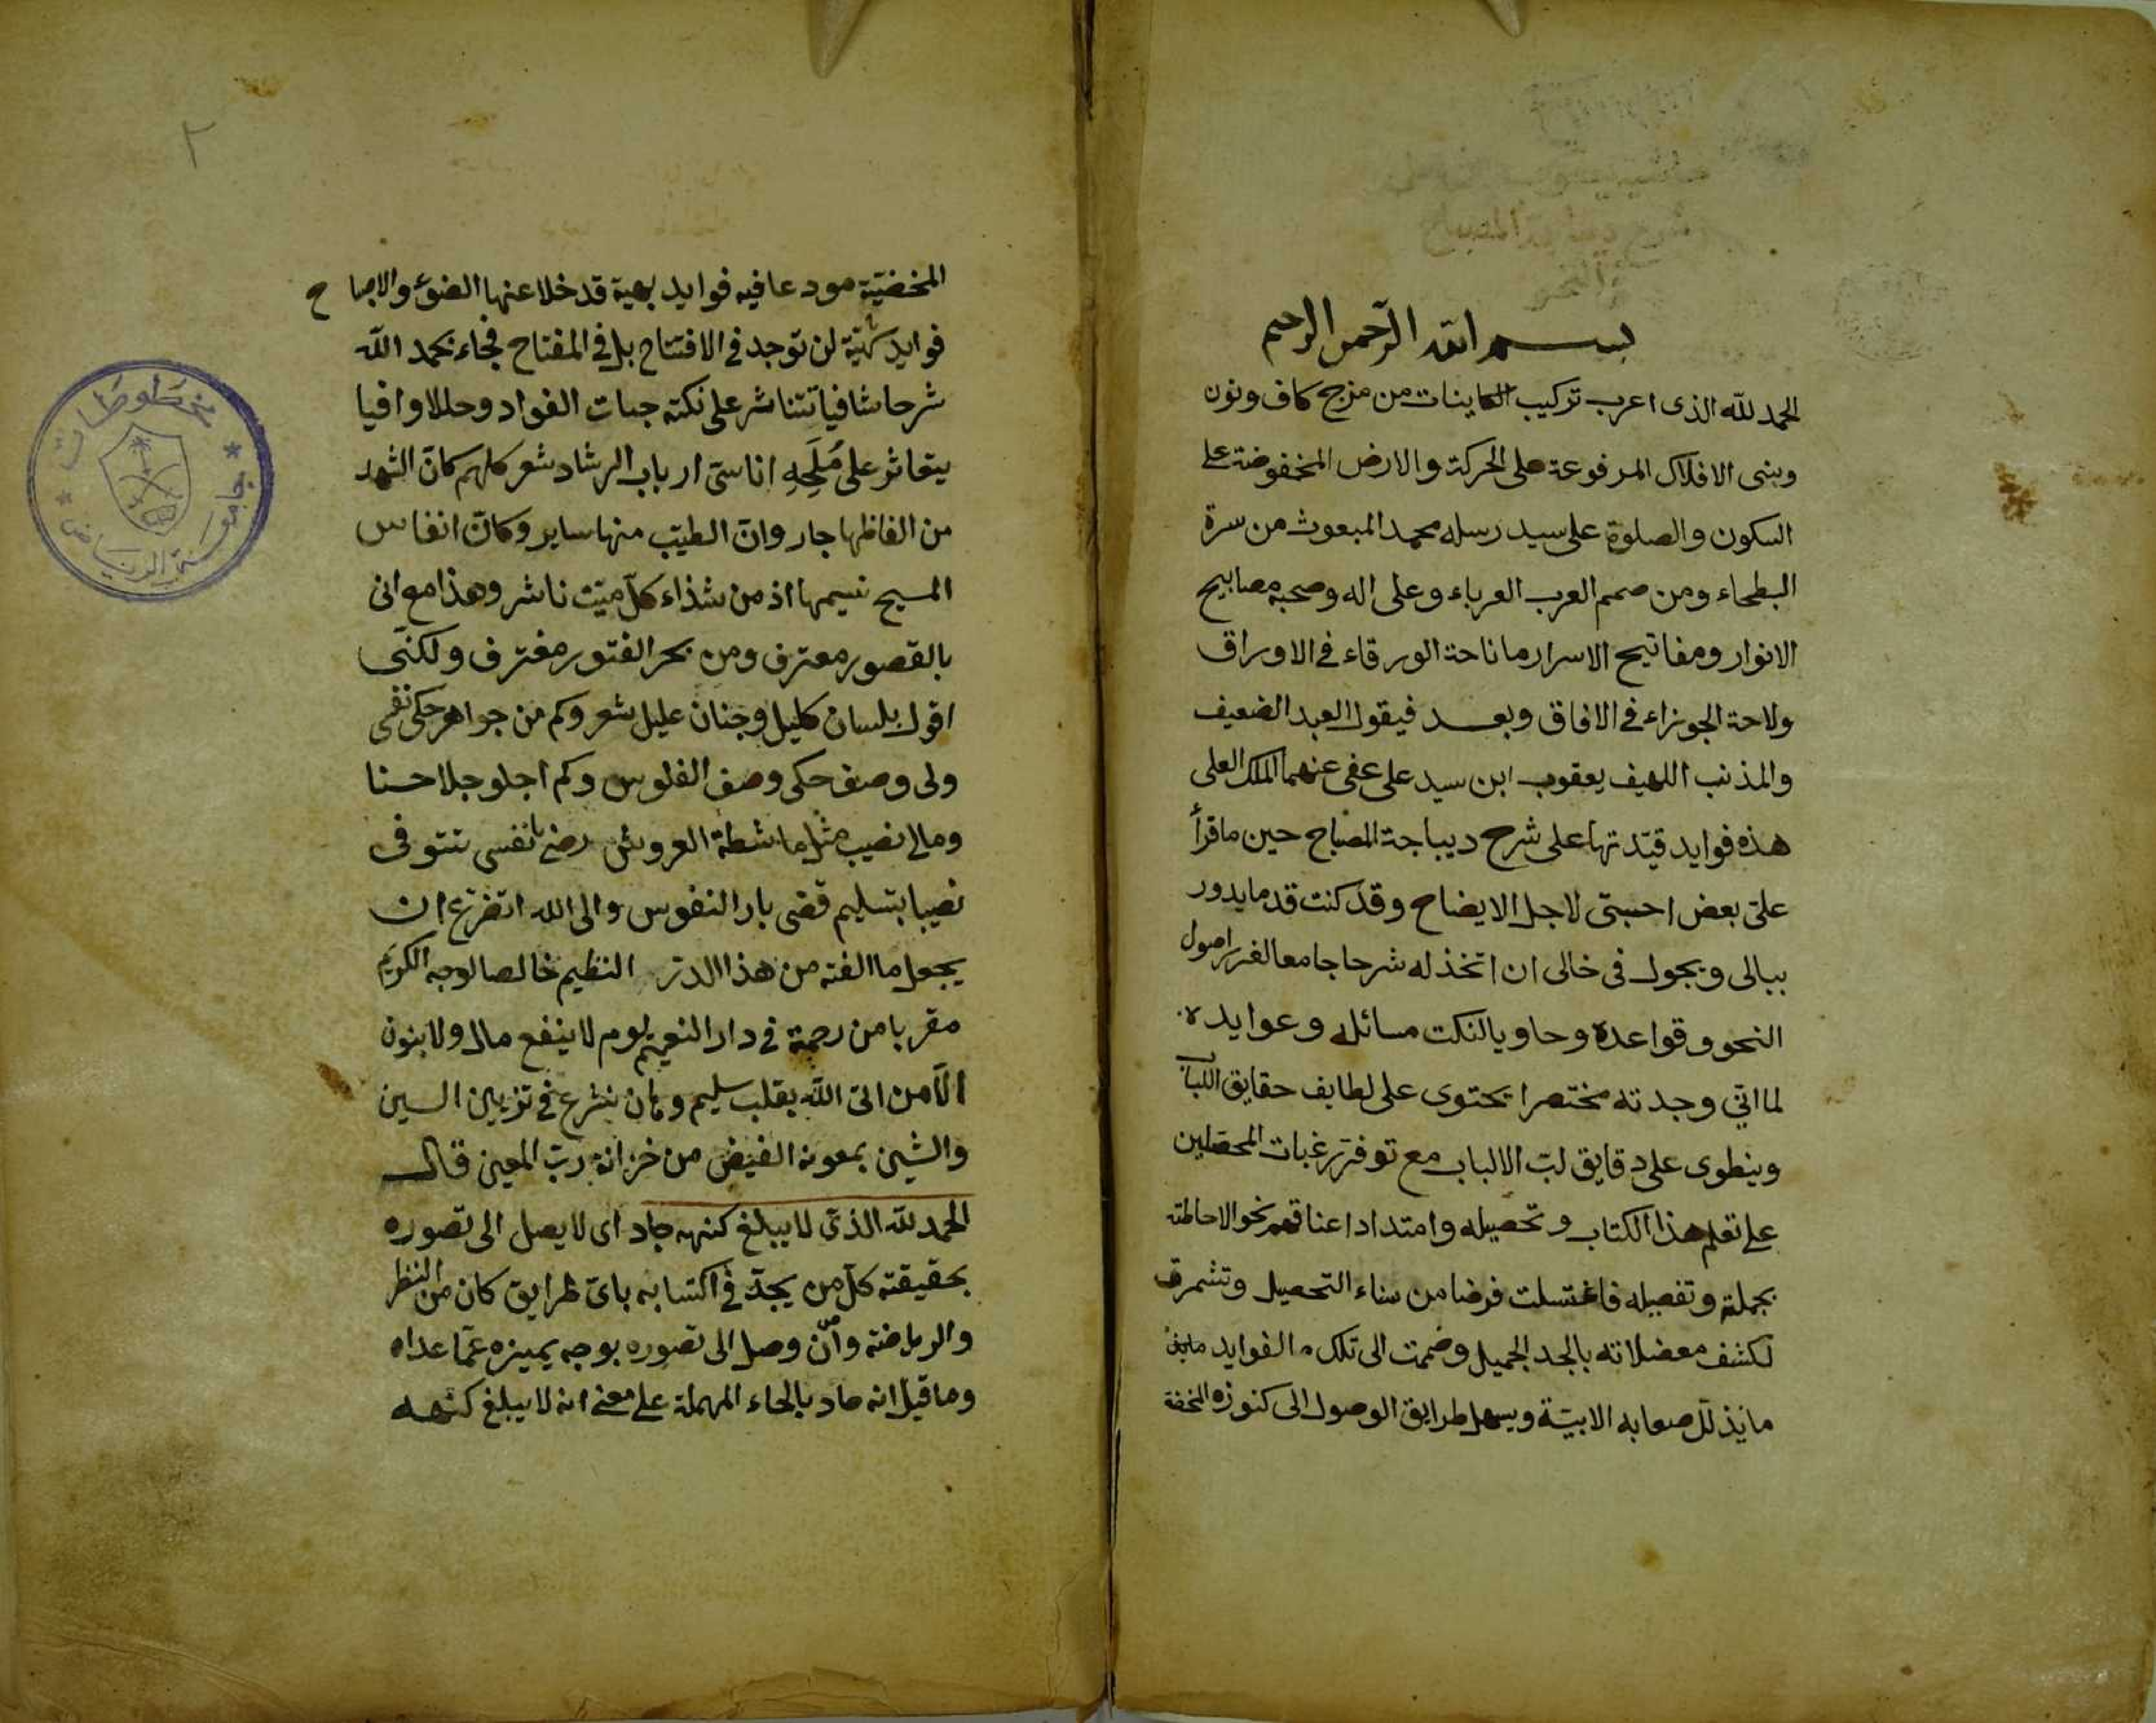 بسم الله الرحمن الرحيم
الحمد لله الذى اعرب تركيب الكاينات من مزج كاف ونون
وبنى الافلاك المرفوعة على الحركة والارض المخفوضة على
السكون والصلوة على سيد رسله محمد المبعوث من سرة
البطحاء ومن صميم العرب العرباء وعلى اله وصحبه مصابيح
الانوار ومفاتيح الاسرار ما ناحة الورقاء فى الاوراق
ولاحة الجوزاء فى الافاق وبعد فيقول العبد الضعيف
والمذنب اللهيف يعقوب ابن سيد على عفى عنهما الملك العلى
هذه فوايد قيّدتها على شرح ديباجة المصباح حين ما قرأ
علىّ بعض احبتى لاجل الايضاح وقد كنت قد ما يدور
ببالى ويجول فى خالى ان اتخذ له شرحا جامعا لغرر اصول
النحو وقواعده وحاويا لنكت مسائله وعوايده
لما انّي وجدته مختصرا يحتوى على لطايف حقايق اللباب
وينطوى على دقايق لبّ الالباب مع توفّر رغبات المحصّلين
على تعلم هذا الكتاب وتحصيله وامتداد اعناقهم نحو الاحاطته
بجملته وتفصيله فاغتسلت فرضا من سناء التحصيل وتشمرت
لكشف معضلاته بالجد الجميل وضممت الى تلك الفوايد
ما يذلّل صعابه الابيّة ويسهل طرايق الوصول الى كنوزه المخفة
٢
المخضيّة مودعا فيه فوايد بهية قد خلا عنها الضوء والاصباح
فوايد لن توجد فى الافتتاح بل فى المفتاح فجاء بحمد الله
شرحا شافيا تتناشر على نكته حبات الفواد وحللا وافيا
يتعاثو على مُلَحِهِ اناسىّ ارباب الرشاد شعر كلهم كانّ الشهد
من الفاظها جار وانّ الطيّب منها ساير وكانّ انفاس
المسيح نسيمها اذ من شذاء كلّ ميّت ناشر وهذا مع انى
بالقصور معترف ومن بحر الفتور مغترف ولكنّى
اقول بلسان كليل وجنان عليل شعر وكم من جواهر حكى نقى
ولى وصف حكى وصف الفلوس وكم اجلو جلا حسنا
ومالى نصيب مثل ماشطة العروش نفسى تتوقى
نصيبا بتسليم قضى بار النفوس والى الله اتضرّع ان
يجعل ما الفته من هذا الدرّ النظيم خالصا لوجه الكريم
مقربا من رحمة فى دار النعيم يوم لا ينفع مال ولا بنون
الّا من اتى الله بقلب سليم وها نشرع فى تزيين السين
والشين بمعونة الفيض من خزانة ربّ المعين قال
الحمد لله الذى لا يبلغ كنهه جاد اى لا يصل الى تصوره
بحقيقته كلّ من يجدّ فى اكتسابه باىّ طرايق كان من النظر
والرياضة وان وصل الى تصوره بوجه يميزه عمّا عداه
وما قيل انه حاد بالحاء المهملة على معنى انه لا يبلغ كنهه
مخطوطات
جامعة الرياض